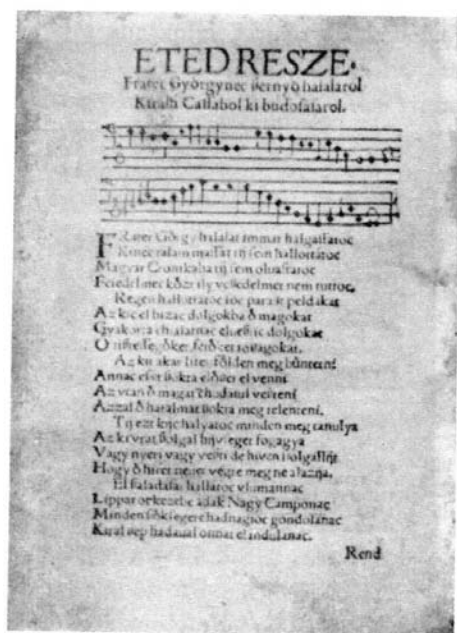 ETED RESZE.
Frater Györgynec halalarol
Kiralh ki budosasarol.
FRater György halalat immar halgassatoc
Kinec talam massat ti sem hallottatoc
Magyar Cronikaba ti sem oluastatoc
Feiedelmec közt ily veszedelmet nem tuttoc,
Regen hallottatoc ioc para peldakat
Az kic el bizac dolgokba ö magokat
Gyakorta dolgokat
Az ki akar Isten földen meg bünteni
Annac eset sokra elöszer el venni
Az vtan ö magat vesteni
Azzal ö hatalmat sokra meg ielenteni.
Ti ezt kic halyatoc minden meg tanulya
Az ki vrat szolgal fogagya
Vagy nyeri vagy veszti de hiven szolgallya
Hogy ö hiret neuet vegre meg ne alazza.
El hallatoc vlumannac
Lippat kezebe adak Nagy Camponac
Minden hadnagioc gondolanac
Kiral szep hadaual onnat el indulanac.
Rend